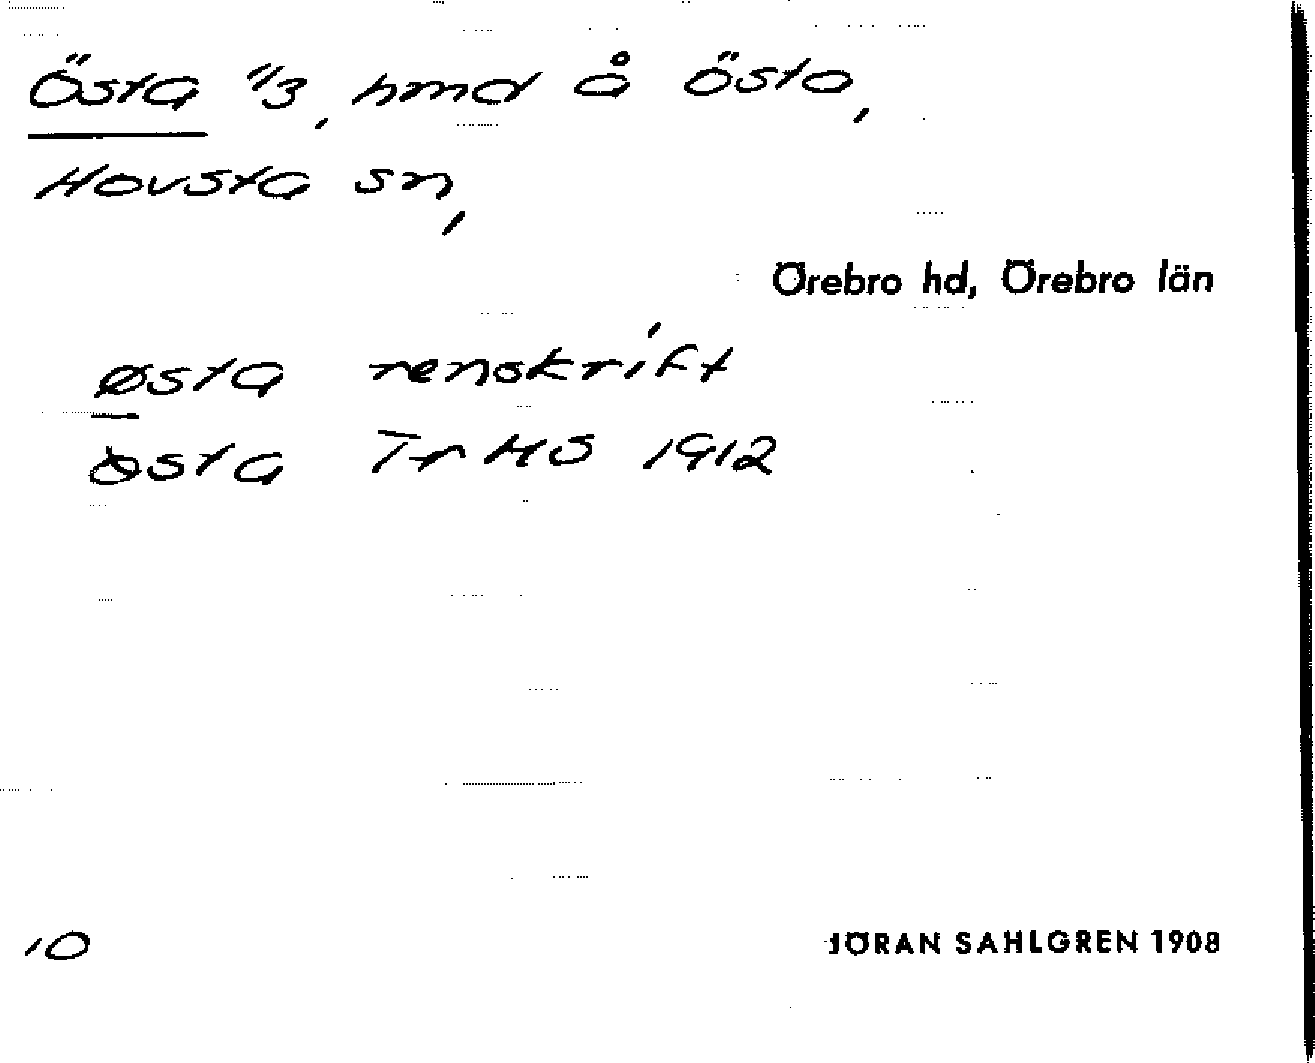 Östa 1/3, hmd å Östa,
Hovsta sn,
Örebro hd, Örebro län
østa renskrift
østa Tr MS 1912
10
JÖRAN SAHLGREN 1908